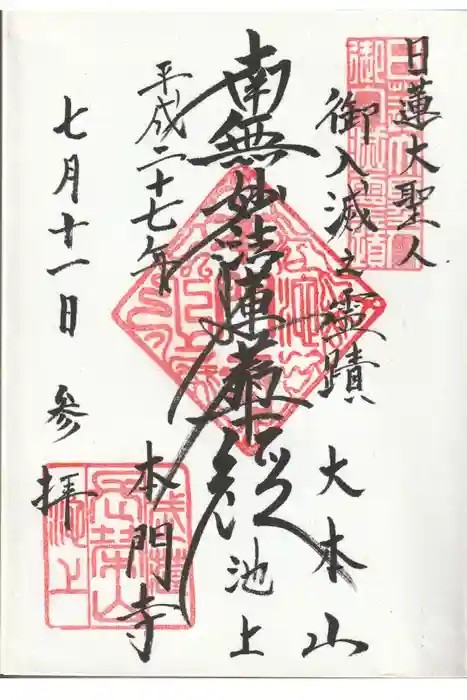 日蓮大聖人
御入滅之霊蹟
大本山
池上
南無妙法蓮華経
本門寺
平成二十七年
七月十一日
参拝